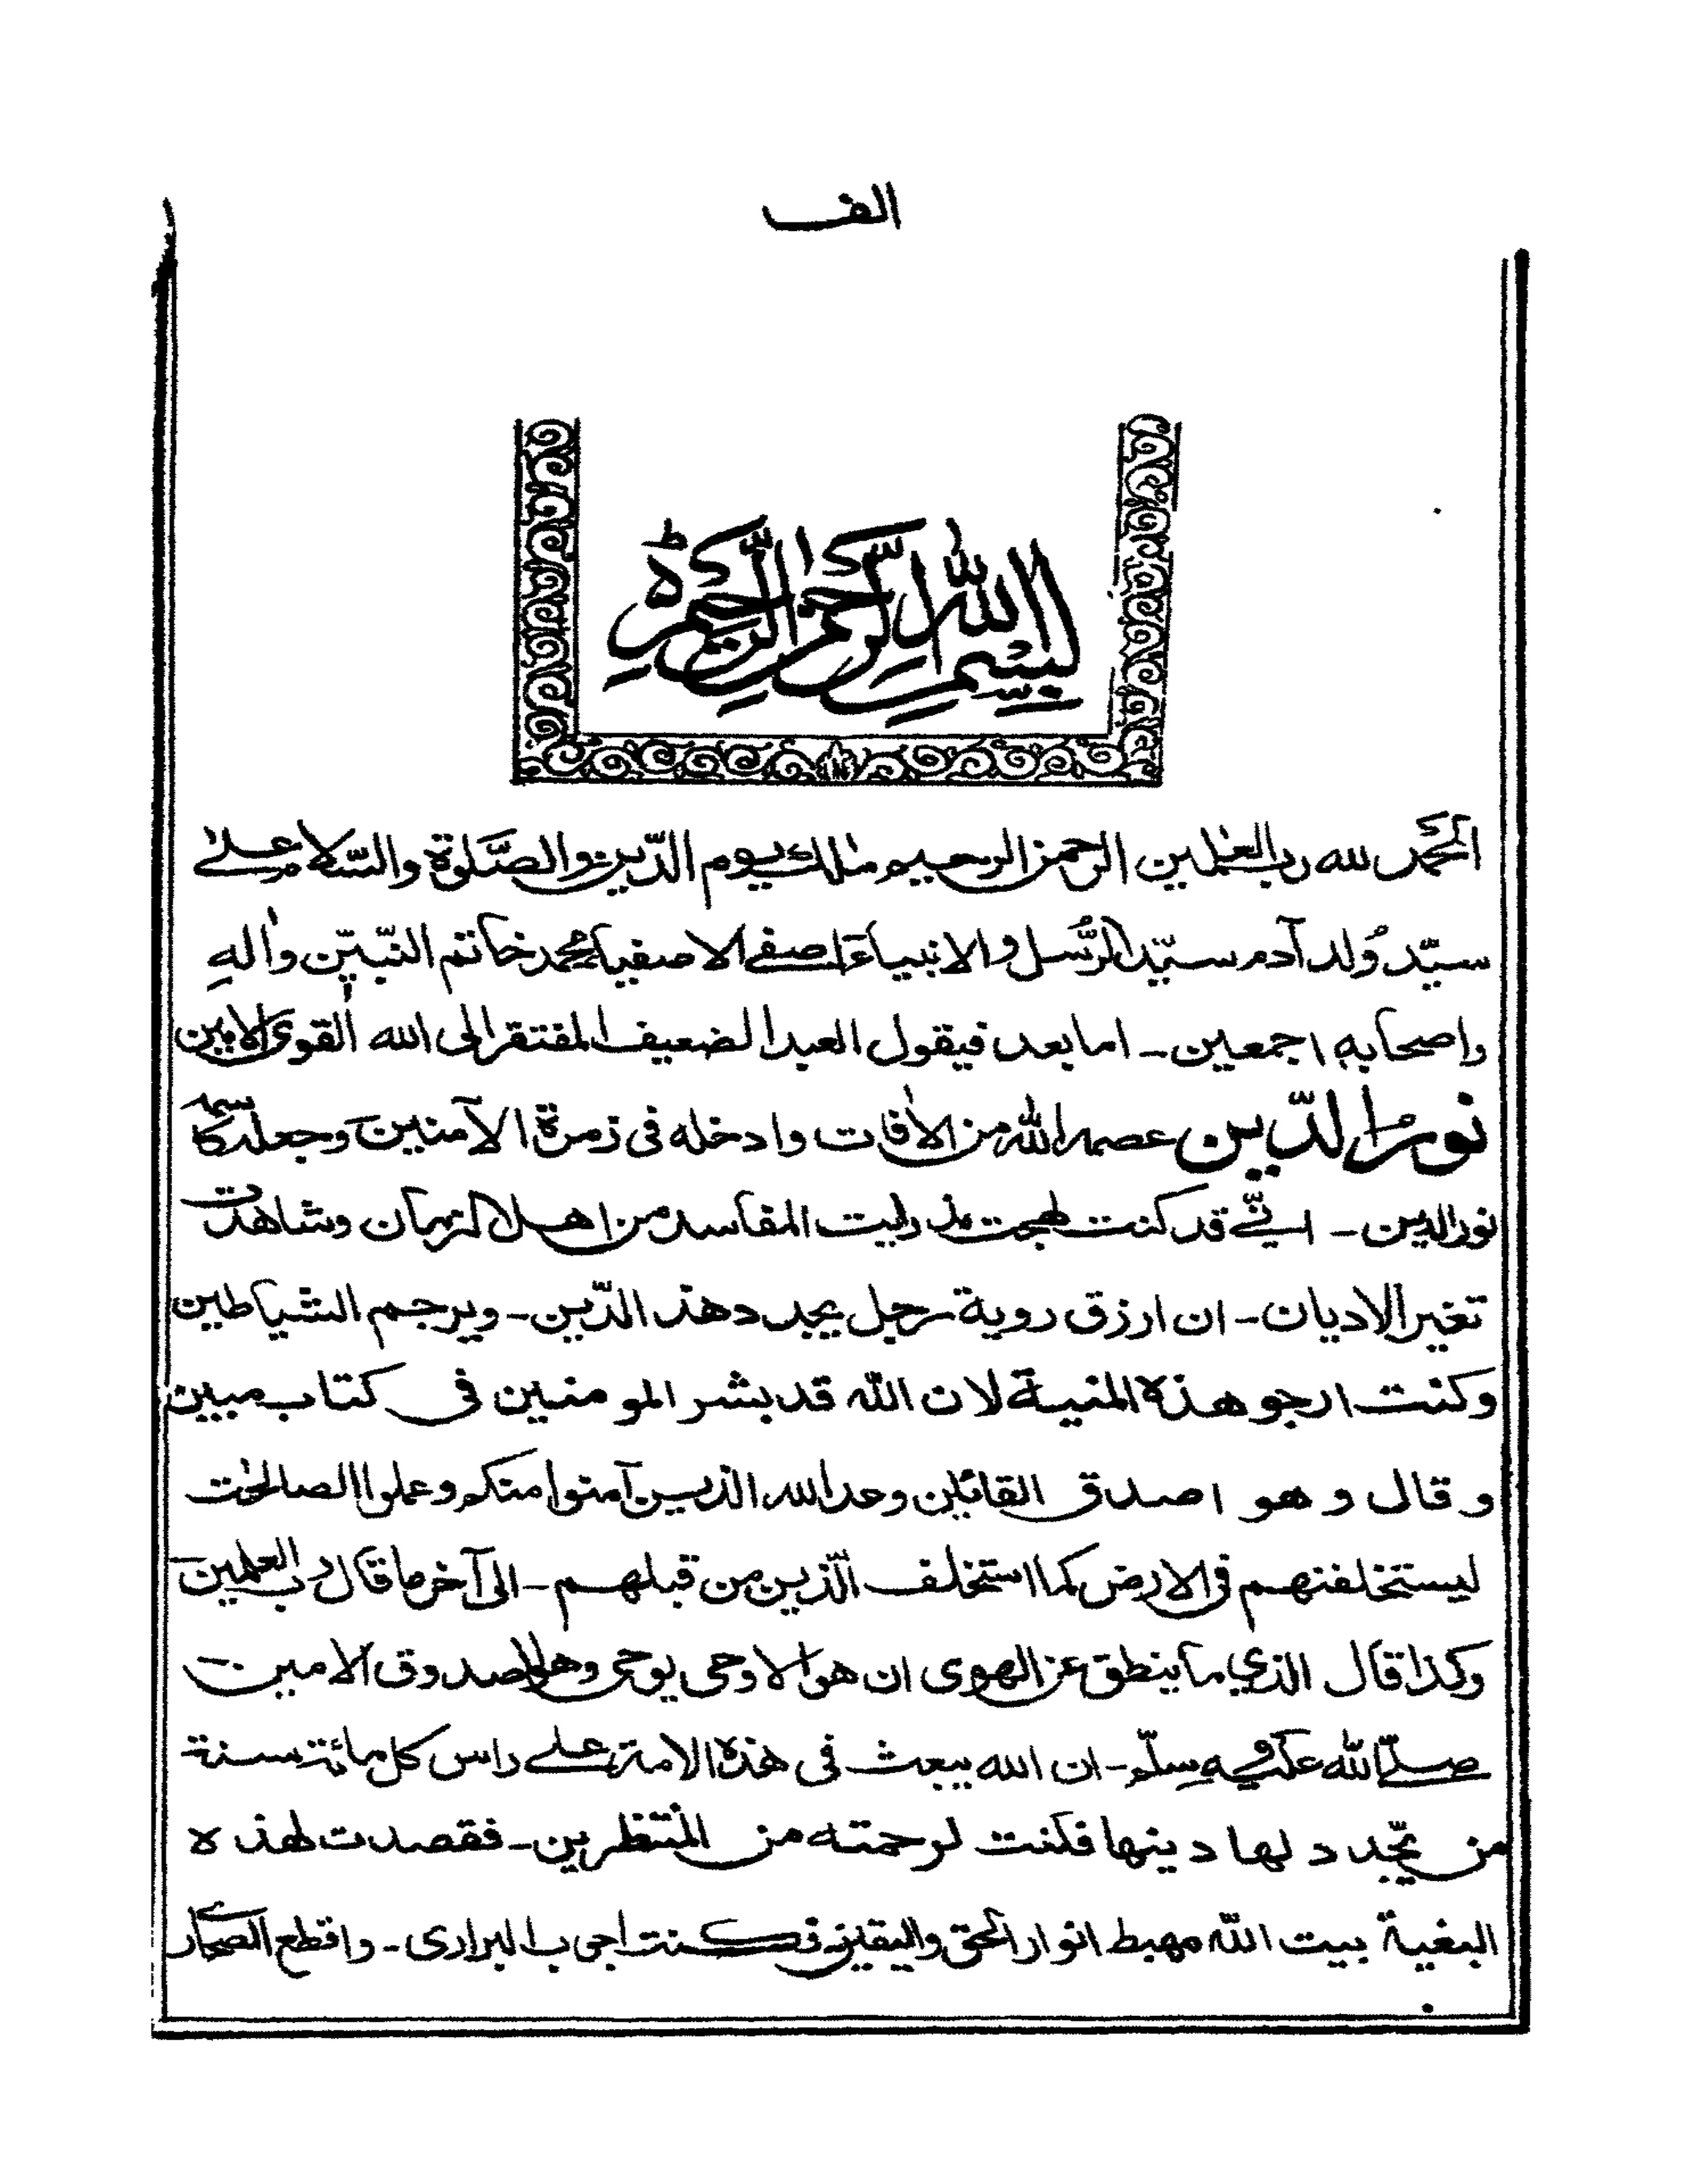 الف
بسم الله الرحمن الرحيم
الحمد لله رب العٰلمين الرحمن الرحيم مٰلك يوم الدّين والصَّلوة والسّلام علىٰ
سيّد وُلد آدم سيّد الرُّسل والانبياء اصفى الاصفياء محمد خاتم النّبيّن واٰلهِ
واصحابهٖ اجمعين ـ اما بعد فيقول العبد الضعيف المفتقر الى الله القوى الامين
نور الدّين عصمه الله من الاٰفات وادخله فى زمرة الآمنين وجعله كاسمه
نور الدين ـ انّى قد كنت لهجت مذ رايت المفاسد من اهل الزمان وشاهدت
تغير الاديان ـ ان ارزق روية رجل يجدد هذ الدّين ـ ويرجم الشياطين
وكنت ارجو هذه المنية لان الله قد بشر المومنين فى كتاب مبين
وقال وهو اصدق القائلين وعد الله الذين آمنوا منكم وعملوا الصالحٰت
ليستخلفنهم فى الارض كما استخلف الّذين من قبلهم ـ الى آخر ما قال رب العٰلمين
وكذا قال الذي ما ينطق عن الهوى ان هو الا وحى يوحى وهو الصدوق الامين
صلّى الله عليه وسلّم ـ ان الله يبعث فى هذه الامة على راس كل مائة سنة
من يّجدد لها دينها فكنت لرحمته من المنتظرين ـ فقصدت لهذه
البغية بيت الله مهبط انوار الحق واليقين فكنت اجوب البرارى ـ واقطع الصحارى